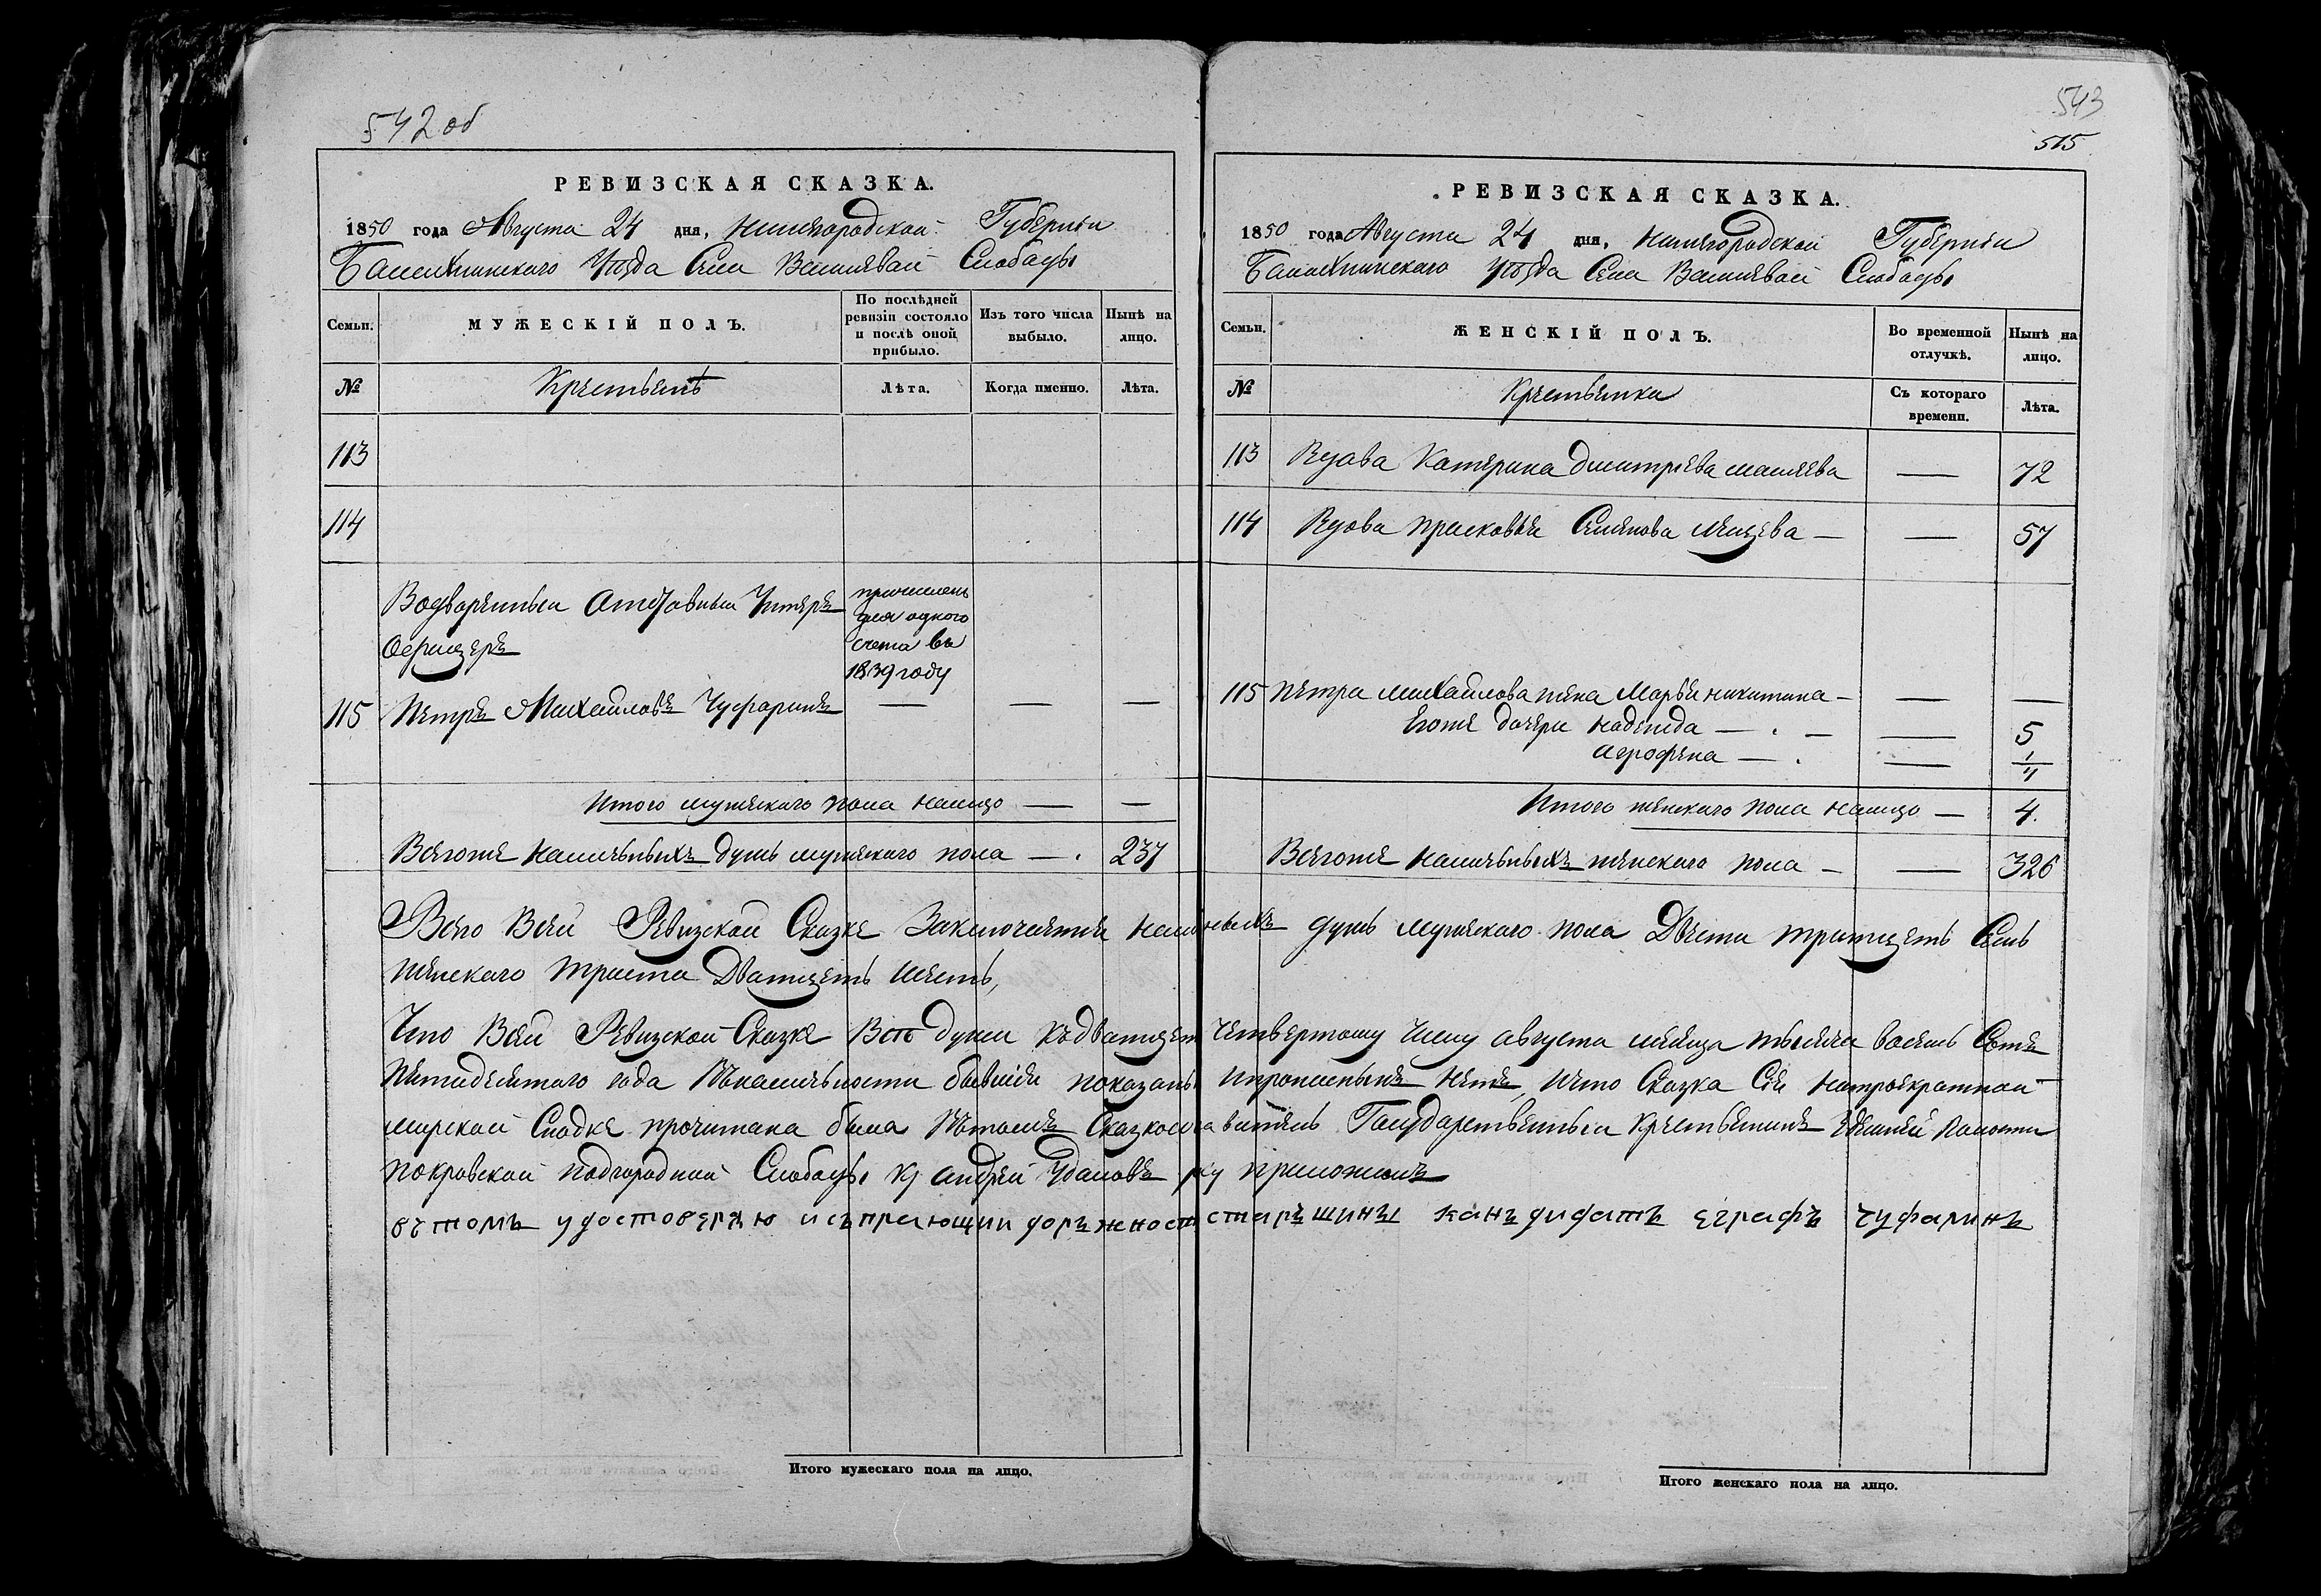 542 об
РЕВИЗСКАЯ СКАЗКА.
1850 года Августа 24 дня, Нижегородской Губернiи
Балахнинскаго Уѣзда Села Василевай Слободы
Семьи. МУЖЕСКIЙ ПОЛЪ. По послѣдней ревизiи состояло и послѣ оной прибыло. Изъ того числа выбыло. Нынѣ на лицо.
№ Крестьянъ Лѣта. Когда именно. Лѣта.
113
114
Водвореныи Атставныи Унтеръ
Офрицеръ
причисленъ
для одного
счета въ
1839 году
115 Петръ Михайловъ Чуфаринъ — — —
Итого мужескаго пола налицо — —
Всегоже наличьныхъ душъ мужескаго пола — 237
543
515
РЕВИЗСКАЯ СКАЗКА.
1850 года Августа 24 дня, Нижегородской Губернiи
Балахнинскаго Уѣзда Села Василевай Слободы
Семьи. ЖЕНСКIЙ ПОЛЪ. Во временной отлучкѣ. Нынѣ на лицо.
№ Крестьянки Съ котораго времени. Лѣта.
113 Вдава Катерина Дмитрiева — 72
114 Вдова Прасковья Семенова — — 57
115 Петра Михайлова жена Марья Никитина — — —
Егоже дочери Надежда — — — 5
Агрофена — — 1/11
Итого женскаго пола налицо — 4.
Всегоже наличьныхъ женскаго пола — — 326
Всего Всей Ревизской Сказке Заключается наличныхъ душъ мужескаго пола Двести тритцеть Семь
женскаго триста Дватцеть шесть,
Что Всей Ревизской Сказке Всѣ души къ дватцет Четвертому Числу августа месяца тысяча восемь Сотъ
Пятидесятаго года Въналичьности бывшiя показаны ипропиеныхъ нетъ, Ичто Сказка Сiя натроекратнай
мирской Сходке прочитана была Втомъ Сказкосоставитель Государственныи Крестьянинъ здешней валости
покровской подгородной Слободы Андрей Удаловъ руку приложилъ
вътомъ удостоверяю исъпрающии доляжность старъшины канъдидатъ еграфъ чуфаринъ
Итого мужескаго пола на лицо.
Итого женскаго пола на лицо.